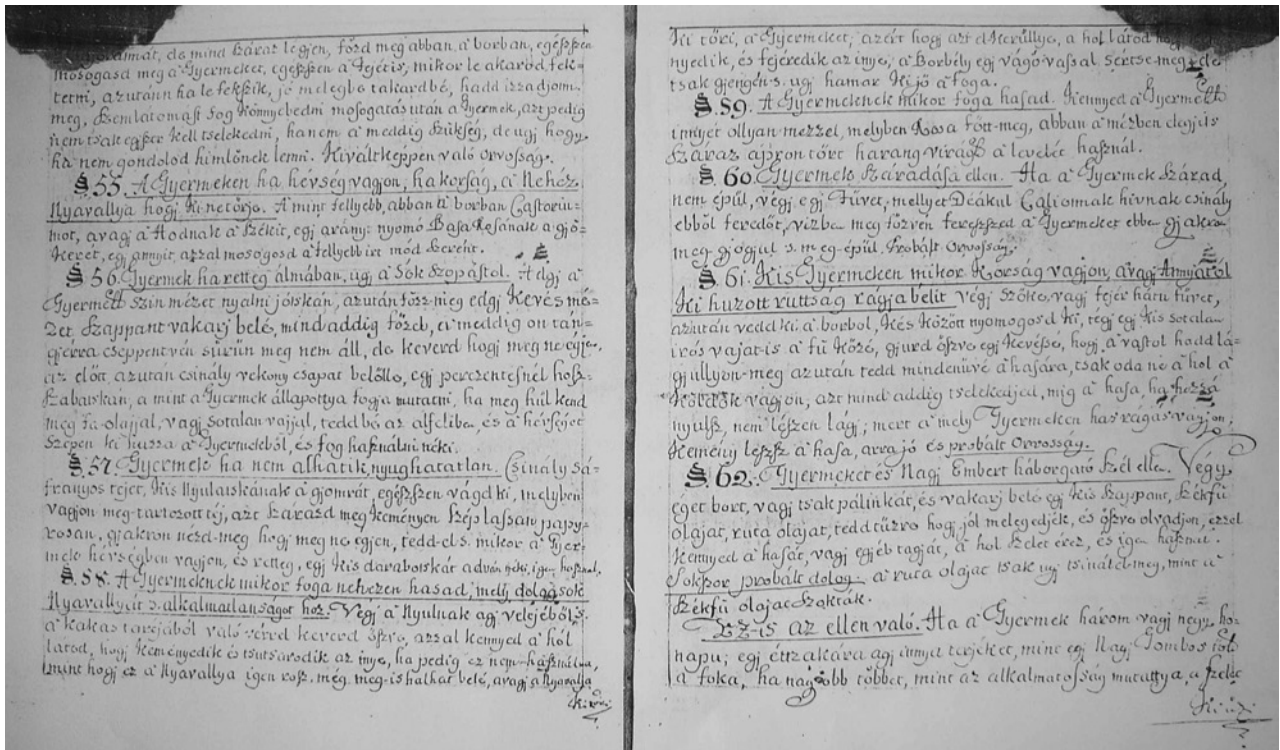 de mind száraz légjen, főzd meg abban, a'borban, egésszen
mosogasd meg a'Gyermeket, egésszen a'Fejétis, mikor le akarod fek=
tetni, azutánn ha le fekszik, jó melegbe takardbé, hadd izzadjonn
meg, szemlátomást fog könnyebedni mosogatás után a'Gyermek, azt pedig
nem tsak egyszer kell tselekedni, hanem a'meddig szükség, de ugj hogy
ha nem gondolod himlőnek lenni. Kiváltképpen való orvosság.
§. 55. A'Gyermeken ha hévség vagjon, ha korság, a'Nehéz
Nyavallya hogj ki ne törje. A'mint fellyebb, abban a'borban Castoriu=
mot, avagj a'Hodnak a'székit, egj arany: nyomó Basa Rosának a'gjö=
keret, egj annyit, azzal mosogosd a'fellyebb irt mód szerént.
§. 56. Gyermek ha retteg álmában, ugj a'Sok szopástol. Adgj a'
Gyermekk szin mézet nyalni jóskán, azután főzz-meg edgj kevés mé=
zet, szappant vakarj belé, mind addig főzed, a'meddig on tán=
gjérra cseppentvén sűrűn meg nem áll, de keverd hogj meg ne égje,
az előtt, azután csinálj vékony csapat belőlle, egj perczentésnél hosz=
szabatskán, a'mint a'Gyermek állapottya fogja mutatni, ha meg hül kend
meg fa-olajjal, vagj sotalan vajjal, tedd bé az alfelibe, és a'hévséget
szépen ki huzza a'Gyermekből, és fog használni néki.
§. 57. Gyermek ha nem alhatik, nyughatatlan. Csinály Sá=
frányos tejet, kis Nyulatskának a'gjomrát, egészszen vágd ki, melyben
vagjon meg-tartozott téj, azt szárazd meg keményen szép lassan papy=
rosan, gjakron nézd-meg hogj meg ne égjen, tedd-el s. mikor a'Gyer=
mek hévségben vagjon, és retteg, egj kis darabotskát adván néki, igen hasznal,
§. 58. A'Gyermeknek mikor foga nehezen hasad, melj dolgások
Nyavallyát s. alkalmatlanságot hoz. Végj a'Nyulnak agj velejéből, s.
a'kakas taréjából való vérrel keverd öszve, azzal kennyed a'hól
látod, hogj keményedik és tsutsorodik az inye, ha pedig ez nem-hasznalna,
mint hogj ez a'Nyavallya igen rosz. még meg-is halhat belé, avagj a'Nyavallja
Ki töri, a'Gyermeket, azért hogj azt el kerüllye, a hol látod hogj
nyedik, és fejéredik az inye, a'Borbély egj vágó vassal sértse meg, de
tsak gjengén s. ugj hamar ki jő a'foga.
§. 59. A'Gyermeknek mikor foga hasad. Kennyed a'Gyermekk
innyét ollyan mézzel, melyben Rosa főtt-meg, abban a'mézben elegjits
száraz apron tört harang-virágk a'levelét használ.
§. 60. Gyermek Száradása ellen. Ha a'Gyermek szárad,
nem épül, végj egj Füvet, mellyet Déákul Galionnak hivnak csinálj
ebből feredőt, vizbe meg főzvén feresszed a'Gyermeket ebbe gjakra
meg gjógjul s. meg-épül. Probált orvosság.
§. 61. Kis Gyermeken mikor Korság vagjon, avagj Annyáról
ki huzott ruttság rágja bélit végj szöke, vagj fejér hátu füvet,
azután vedd ki a'borbol, kés között nyomogosd ki, tégj egj kis sotalan
irós vajat-is a'fü közé, gjurd öszve egj kevéssé, hogj a'vastol hadd lá=
gjullyon-meg azután tedd mindenüvé a'hasára, tsak oda ne a hol a'
köldök vagjon, azt mind addig tselekedjed, míg a' hasa, ha hozzá
nyulsz, nem lészen lágj; mert a'mely Gyermeken hasrágás vagjon,
kemény lészsz a'hasa, arra jó és probált Orvosság.
§. 62. Gyermeket és Nagj Embert háborgató szél ellen. Végy
éget bort, vagj tsak pálinkát, és vakarj belé egj kis szappant, székfü
olaját, ruta olaját, tedd tüzre hogj jól melegedjék, és öszve olvadjon, ezzel
kennyed a'hasát, vagj egjéb tagját, a'hol szelet érez, és igen használ.
Sokszor probált dolog. a'ruta olaját tsak ugj tsináld-meg, mint a'
székfü olaját szokták.
Ez-is az ellen való. Ha a'Gyermek három vagj négy ho=
napu; egj éttzakára agj annya terjéket, mint egj Nagj Gombos tőű
a foka, ha nagjobb többet, mint az alkalmatosság mutattya, a szelet